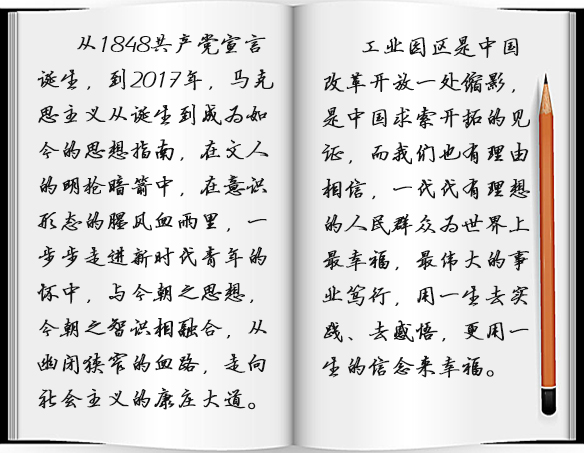 从1848共产党宣言
诞生，到2017年，马克
思主义从诞生到成为如
今的思想指南，在文人
的明枪暗箭中，在意识
形态的腥风血雨里，一
步步走进新时代青年的
怀中，与今朝之思想，
今朝之智识相融合，从
幽闭狭窄的血路，走向
社会主义的康庄大道。
工业园区是中国
改革开放一处缩影，
是中国求索开拓的见
证，而我们也有理由
相信，一代代有理想
的人民群众为世界上
最幸福，最伟大的事
业笃行，用一生去实
践、去感悟，更用一
生的信念来幸福。